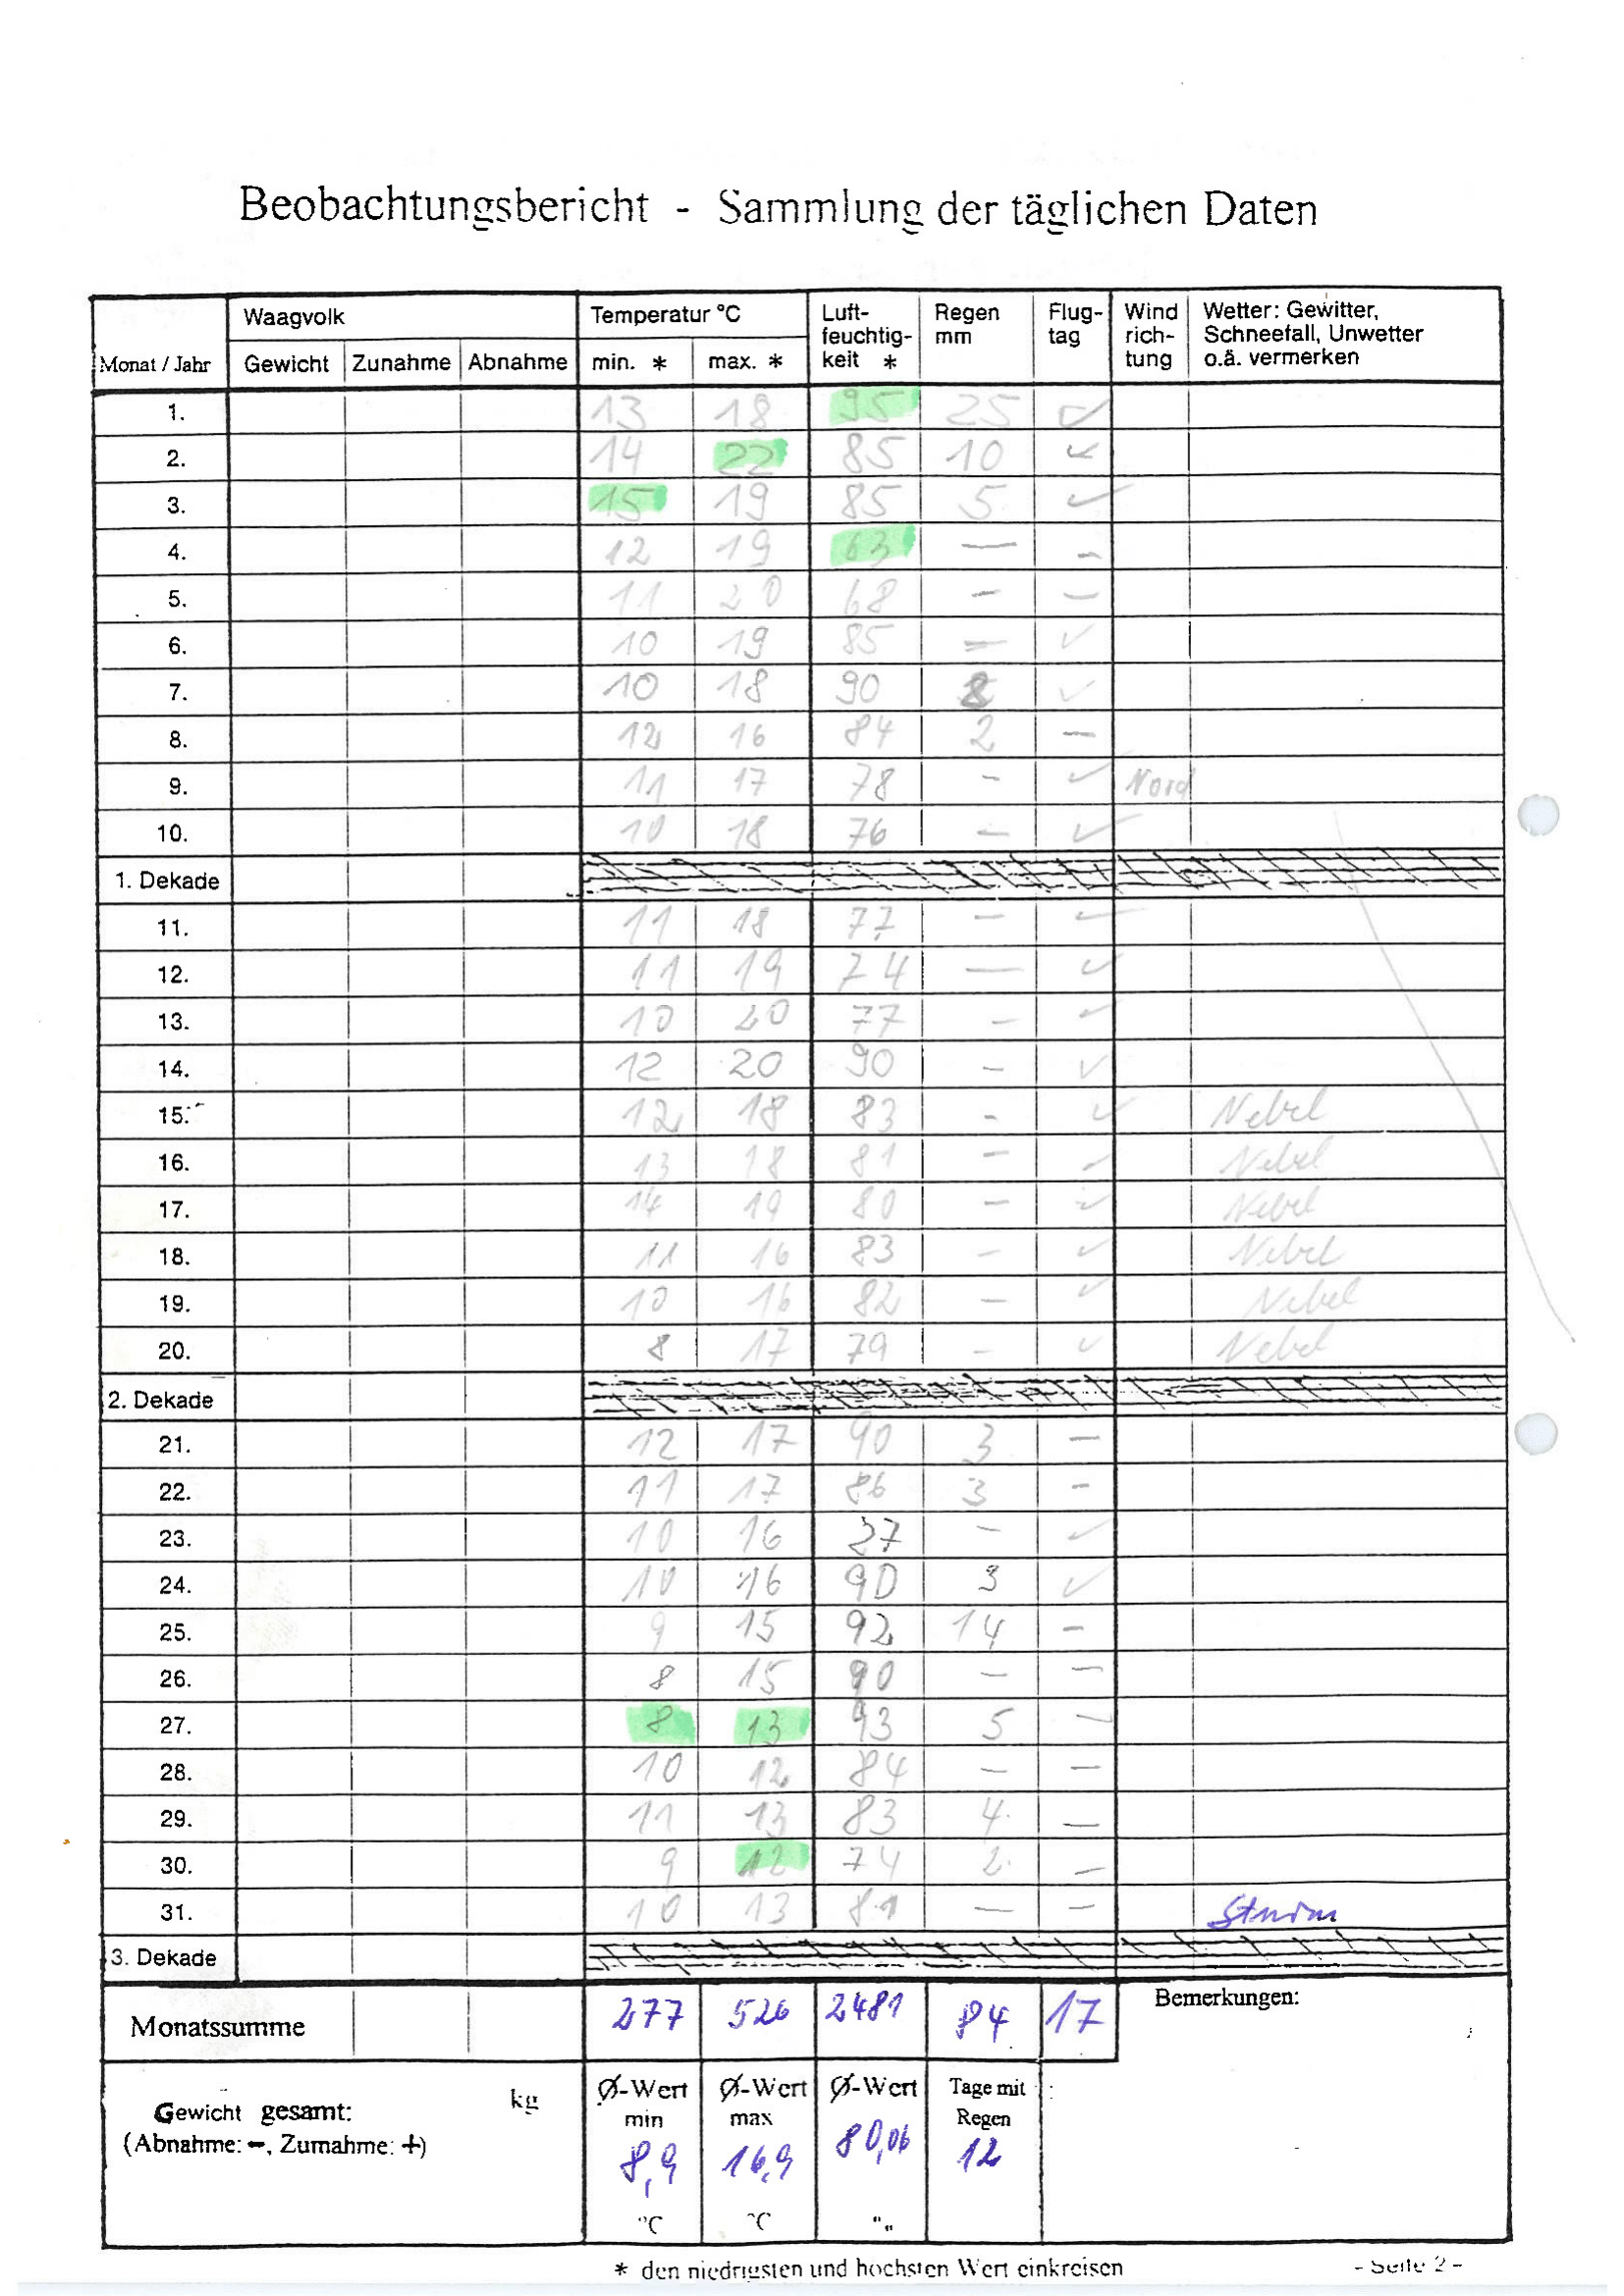 Beobachtungsbericht - Sammlung der täglichen Daten
Monat / Jahr Waagvolk Temperatur °C Luft-feuchtig-keit * Regen mm Flug-tag Wind rich-tung Wetter: Gewitter, Schneefall, Unwetter o.ä. vermerken
Gewicht Zunahme Abnahme min. * max. *
1. 13 18 95 25 ✓
2. 14 22 85 10 ✓
3. 15 19 85 5 ✓
4. 12 19 63 — –
5. 11 20 68 – –
6. 10 19 85 – ✓
7. 10 18 90 8 ✓
8. 12 16 84 2 –
9. 11 17 78 – ✓ Nord
10. 10 18 76 – ✓
1. Dekade
11. 11 18 77 – ✓
12. 11 19 74 — ✓
13. 10 20 77 – ✓
14. 12 20 90 – ✓
15. 12 18 83 – ✓ Nebel
16. 13 18 81 – ✓ Nebel
17. 14 19 80 – ✓ Nebel
18. 11 16 83 – ✓ Nebel
19. 10 16 82 – ✓ Nebel
20. 8 17 79 – ✓ Nebel
2. Dekade
21. 12 17 90 3 –
22. 11 17 86 3 –
23. 10 16 27 – ✓
24. 10 16 90 3 ✓
25. 9 15 92 14 –
26. 8 15 90 – –
27. 8 13 93 5 –
28. 10 12 84 – –
29. 11 13 83 4. –
30. 9 12 74 2. –
31. 10 13 81 – – Sturm
3. Dekade
Monatssumme 277 526 2481 84 17 Bemerkungen:
Gewicht gesamt: kg
(Abnahme: –, Zumahme: +)
Ø-Wert min 8,9 °C
Ø-Wert max 16,9 °C
Ø-Wert 80,06
Tage mit Regen 12
* den niedrigsten und hochsten Wert einkreisen
- Seite 2 -